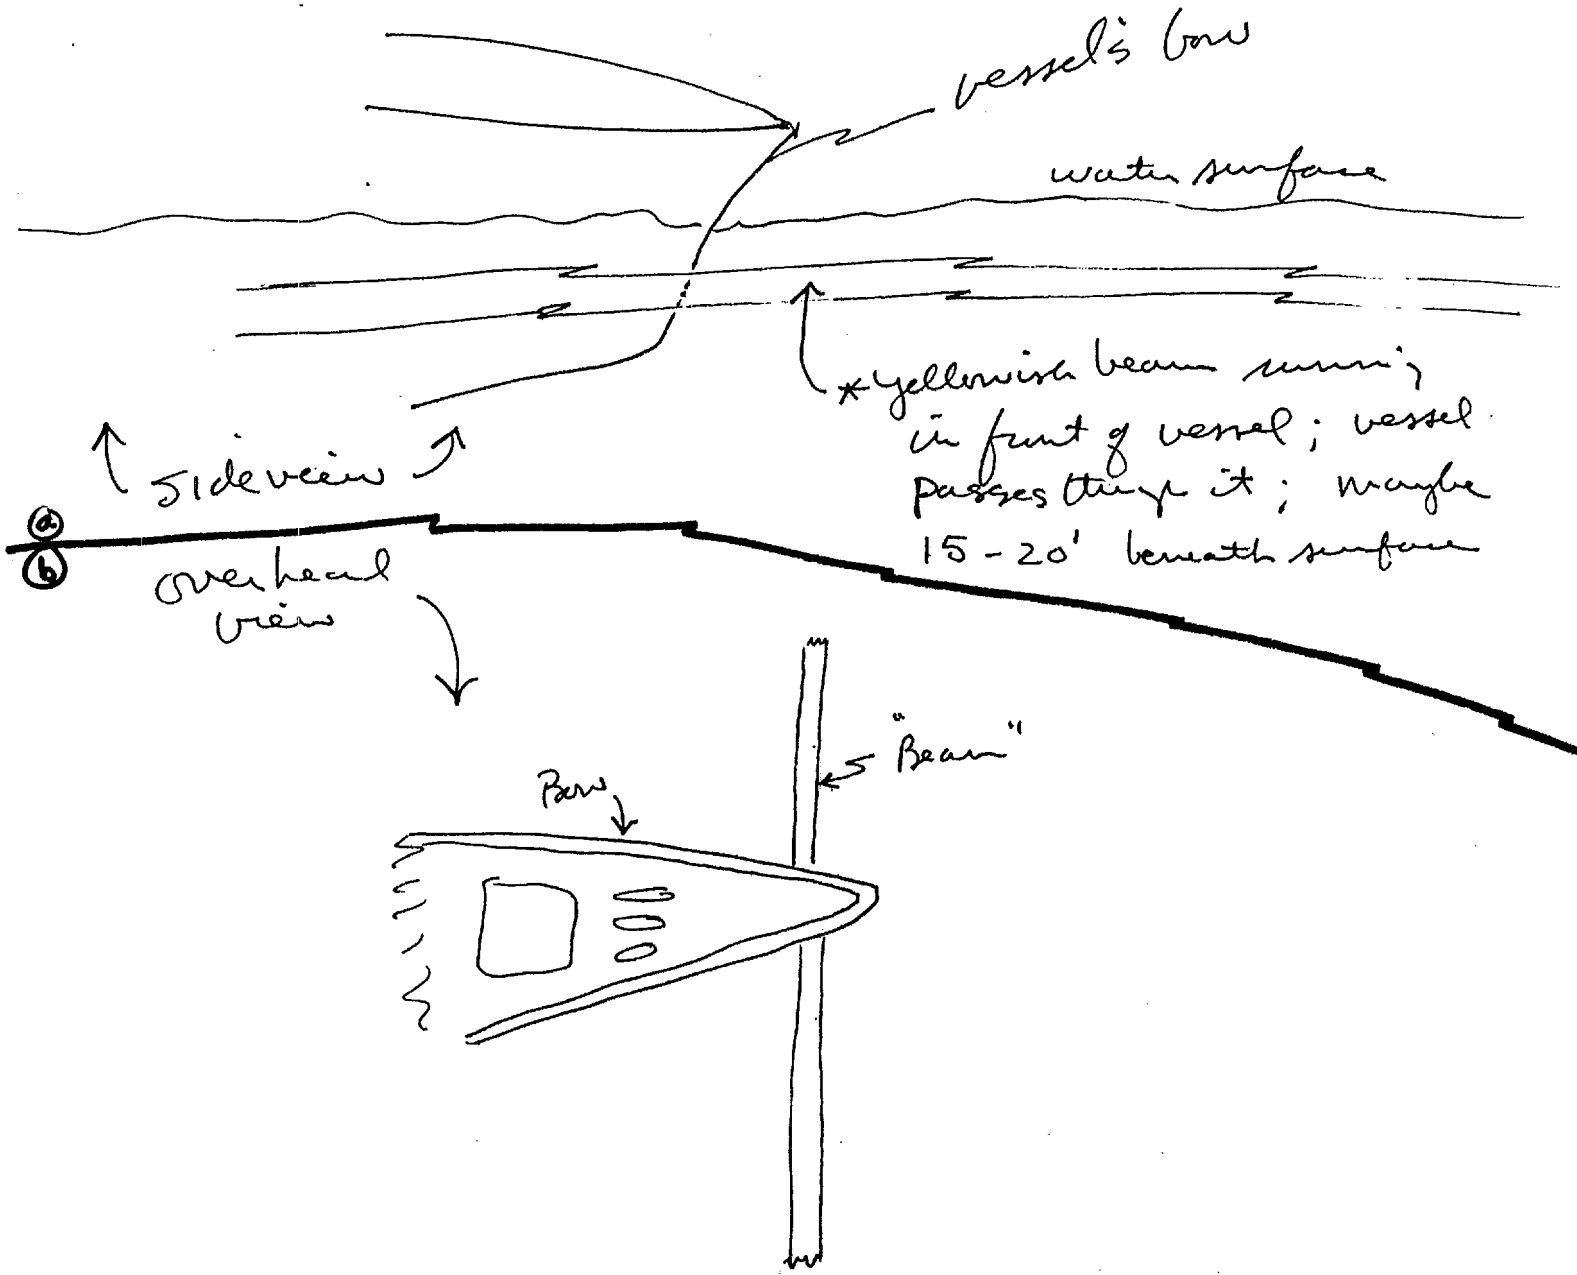 vessel's bow
water surface
*yellowish beam running
in front of vessel; vessel
passes through it; maybe
15-20' beneath surface
side view
a
b
overhead
view
"Beam"
Bow